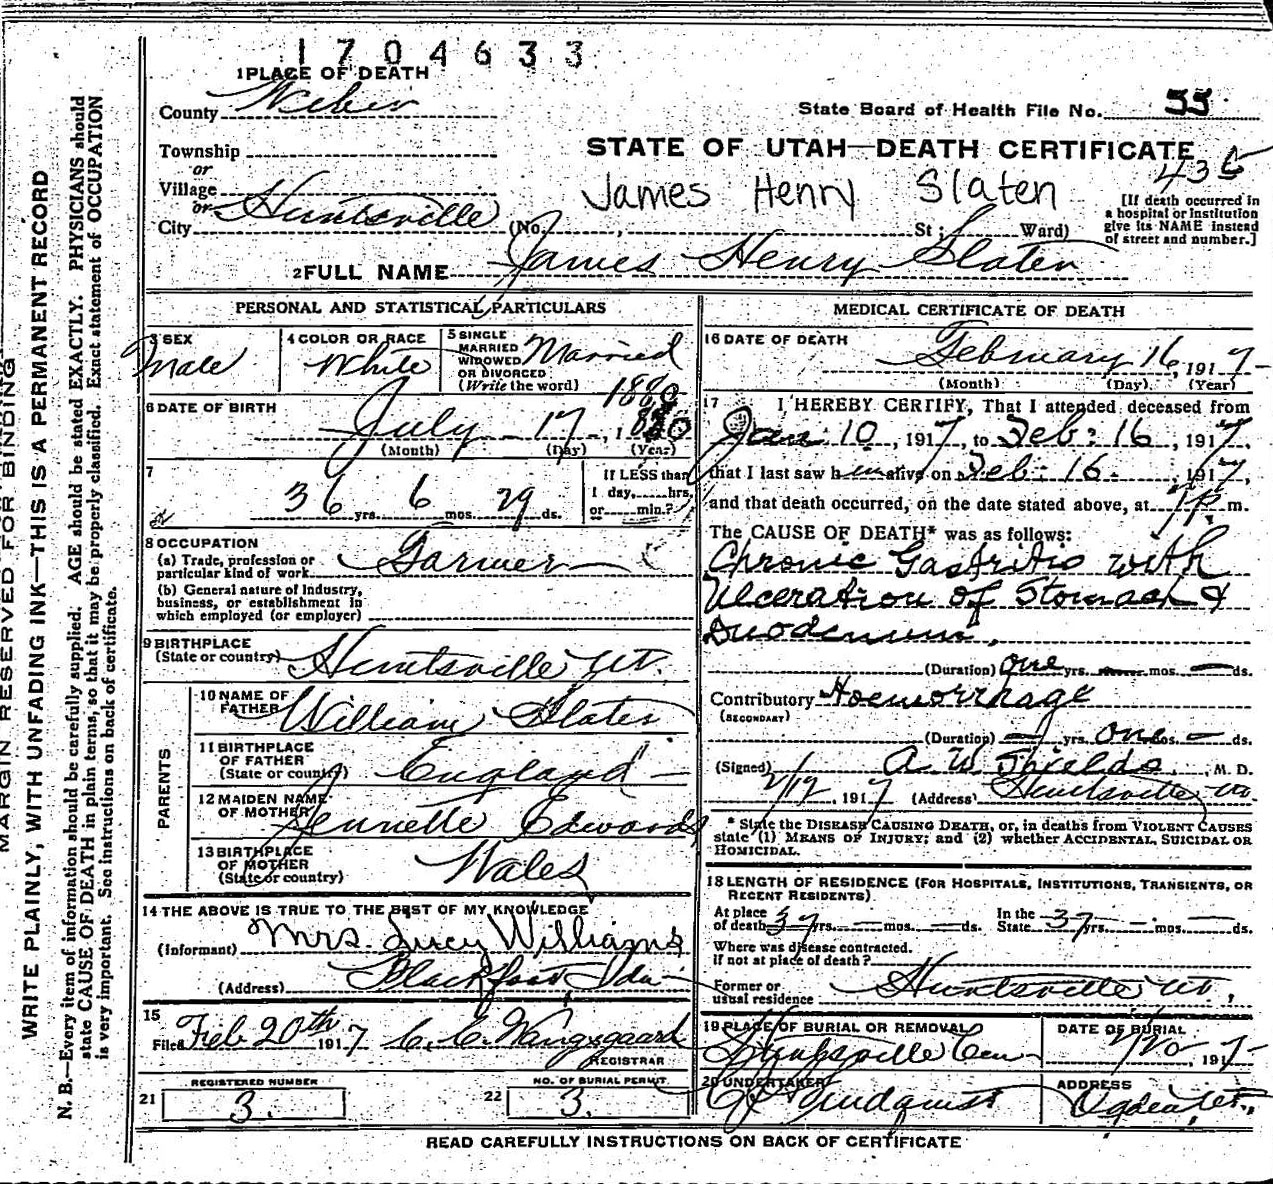 1704633
1 PLACE OF DEATH
County Weber
State Board of Health File No. 55
Township
or
Village
or
City Huntsville
STATE OF UTAH—DEATH CERTIFICATE
436
James Henry Slaten
(No. , St; Ward)
[If death occurred in
a hospital or Institution
give its NAME instead
of street and number.]
2 FULL NAME James Henry Slater
PERSONAL AND STATISTICAL PARTICULARS
3 SEX
Male
4 COLOR OR RACE
White
5 SINGLE
MARRIED
WIDOWED
OR DIVORCED
(Write the word)
Married
6 DATE OF BIRTH
1880
July 17, 1880
(Month) (Day) (Year)
7
36 yrs. 6 mos. 29 ds.
If LESS than
1 day, hrs.
or min.?
8 OCCUPATION
(a) Trade, profession or
particular kind of work Farmer
(b) General nature of Industry,
business, or establishment in
which employed (or employer)
9 BIRTHPLACE
(State or country) Huntsville Ut.
PARENTS
10 NAME OF
FATHER William Slater
11 BIRTHPLACE
OF FATHER
(State or country) England
12 MAIDEN NAME
OF MOTHER Jennette Edwards
13 BIRTHPLACE
OF MOTHER
(State or country) Wales
14 THE ABOVE IS TRUE TO THE BEST OF MY KNOWLEDGE
(Informant) Mrs. Lucy Williams
(Address) Blackfoot Ida
15
Filed Feb 20th 1917 C. C. Wangsgaard
REGISTRAR
REGISTERED NUMBER
21 3.
NO. OF BURIAL PERMIT
22 3.
MEDICAL CERTIFICATE OF DEATH
16 DATE OF DEATH
February 16, 1917
(Month) (Day) (Year)
17 I HEREBY CERTIFY, That I attended deceased from
Jan. 10, 1917, to Feb. 16, 1917,
that I last saw him alive on Feb. 16, 1917,
and that death occurred, on the date stated above, at m.
The CAUSE OF DEATH* was as follows:
Chronic Gastritis with
Ulceration of Stomach &
Duodenum.
(Duration) one yrs. — mos. — ds.
Contributory Hoemorrhage
(SECONDARY)
(Duration) — yrs. one mos. — ds.
(Signed) A. W. Shields, M. D.
2/17, 1917 (Address) Huntsville Ut.
* State the DISEASE CAUSING DEATH, or, in deaths from VIOLENT CAUSES
state (1) MEANS OF INJURY; and (2) whether ACCIDENTAL, SUICIDAL OR
HOMICIDAL.
18 LENGTH OF RESIDENCE (FOR HOSPITALS, INSTITUTIONS, TRANSIENTS, OR
RECENT RESIDENTS)
At place
of death 37 yrs. — mos. — ds.
In the
State 37 yrs. — mos. — ds.
Where was disease contracted.
If not at place of death?
Former or
usual residence Huntsville Ut.
19 PLACE OF BURIAL OR REMOVAL
Huntsville Cem
DATE OF BURIAL
2/20, 1917
20 UNDERTAKER
Lindquist
ADDRESS
Ogden, Ut.
READ CAREFULLY INSTRUCTIONS ON BACK OF CERTIFICATE
MARGIN RESERVED FOR BINDING
WRITE PLAINLY, WITH UNFADING INK—THIS IS A PERMANENT RECORD
N. B.—Every item of information should be carefully supplied. AGE should be stated EXACTLY. PHYSICIANS should
state CAUSE OF DEATH in plain terms, so that it may be properly classified. Exact statement of OCCUPATION
is very important. See instructions on back of certificate.